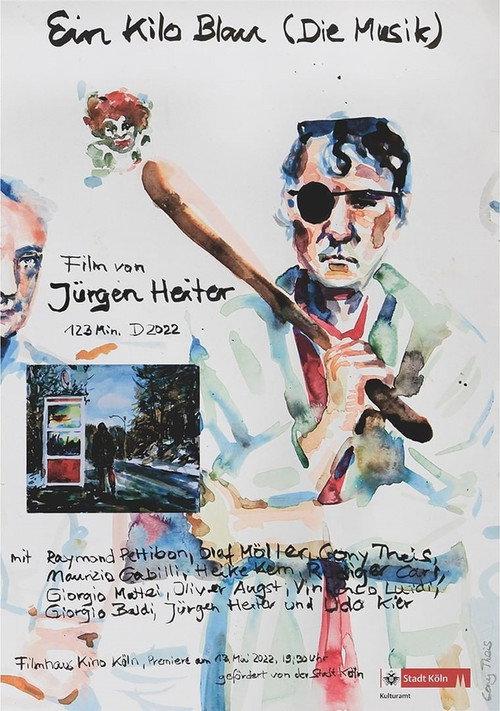 Ein Kilo Blau (Die Musik)
Film von
Jürgen Heiter
123 Min. D 2022
mit Raymond Pettibon, Olaf Möller, Gomy Theis,
Maurizio Gabilli, Heike Kern, Rüdiger Carl,
Giorgio Mattei, Oliver Augst, Luigi,
Giorgio Baldi, Jürgen Heiter und Udo Kier
Filmhaus Kino Köln, Premiere am 13. Mai 2022, 19,30 Uhr
gefördert von der Stadt Köln
Stadt Köln
Kulturamt
Gomy Theis